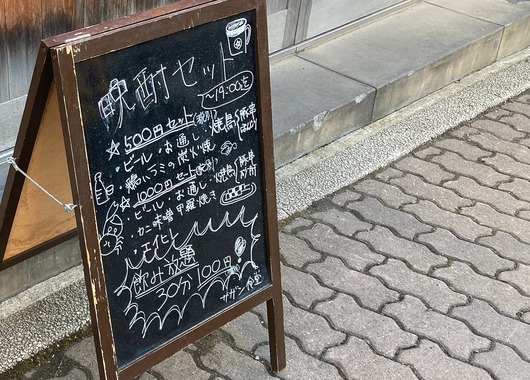 晩酌セット
〜19:00迄
☆500円セット(税別)
・ビール・お通し・焼鳥
・鶏ハラミの炭火焼
☆1000円セット(税別)
・ビール・お通し・焼鳥
・カニ味噌甲羅焼き
・エイヒレ
飲み放題
30分100円
サガン食堂